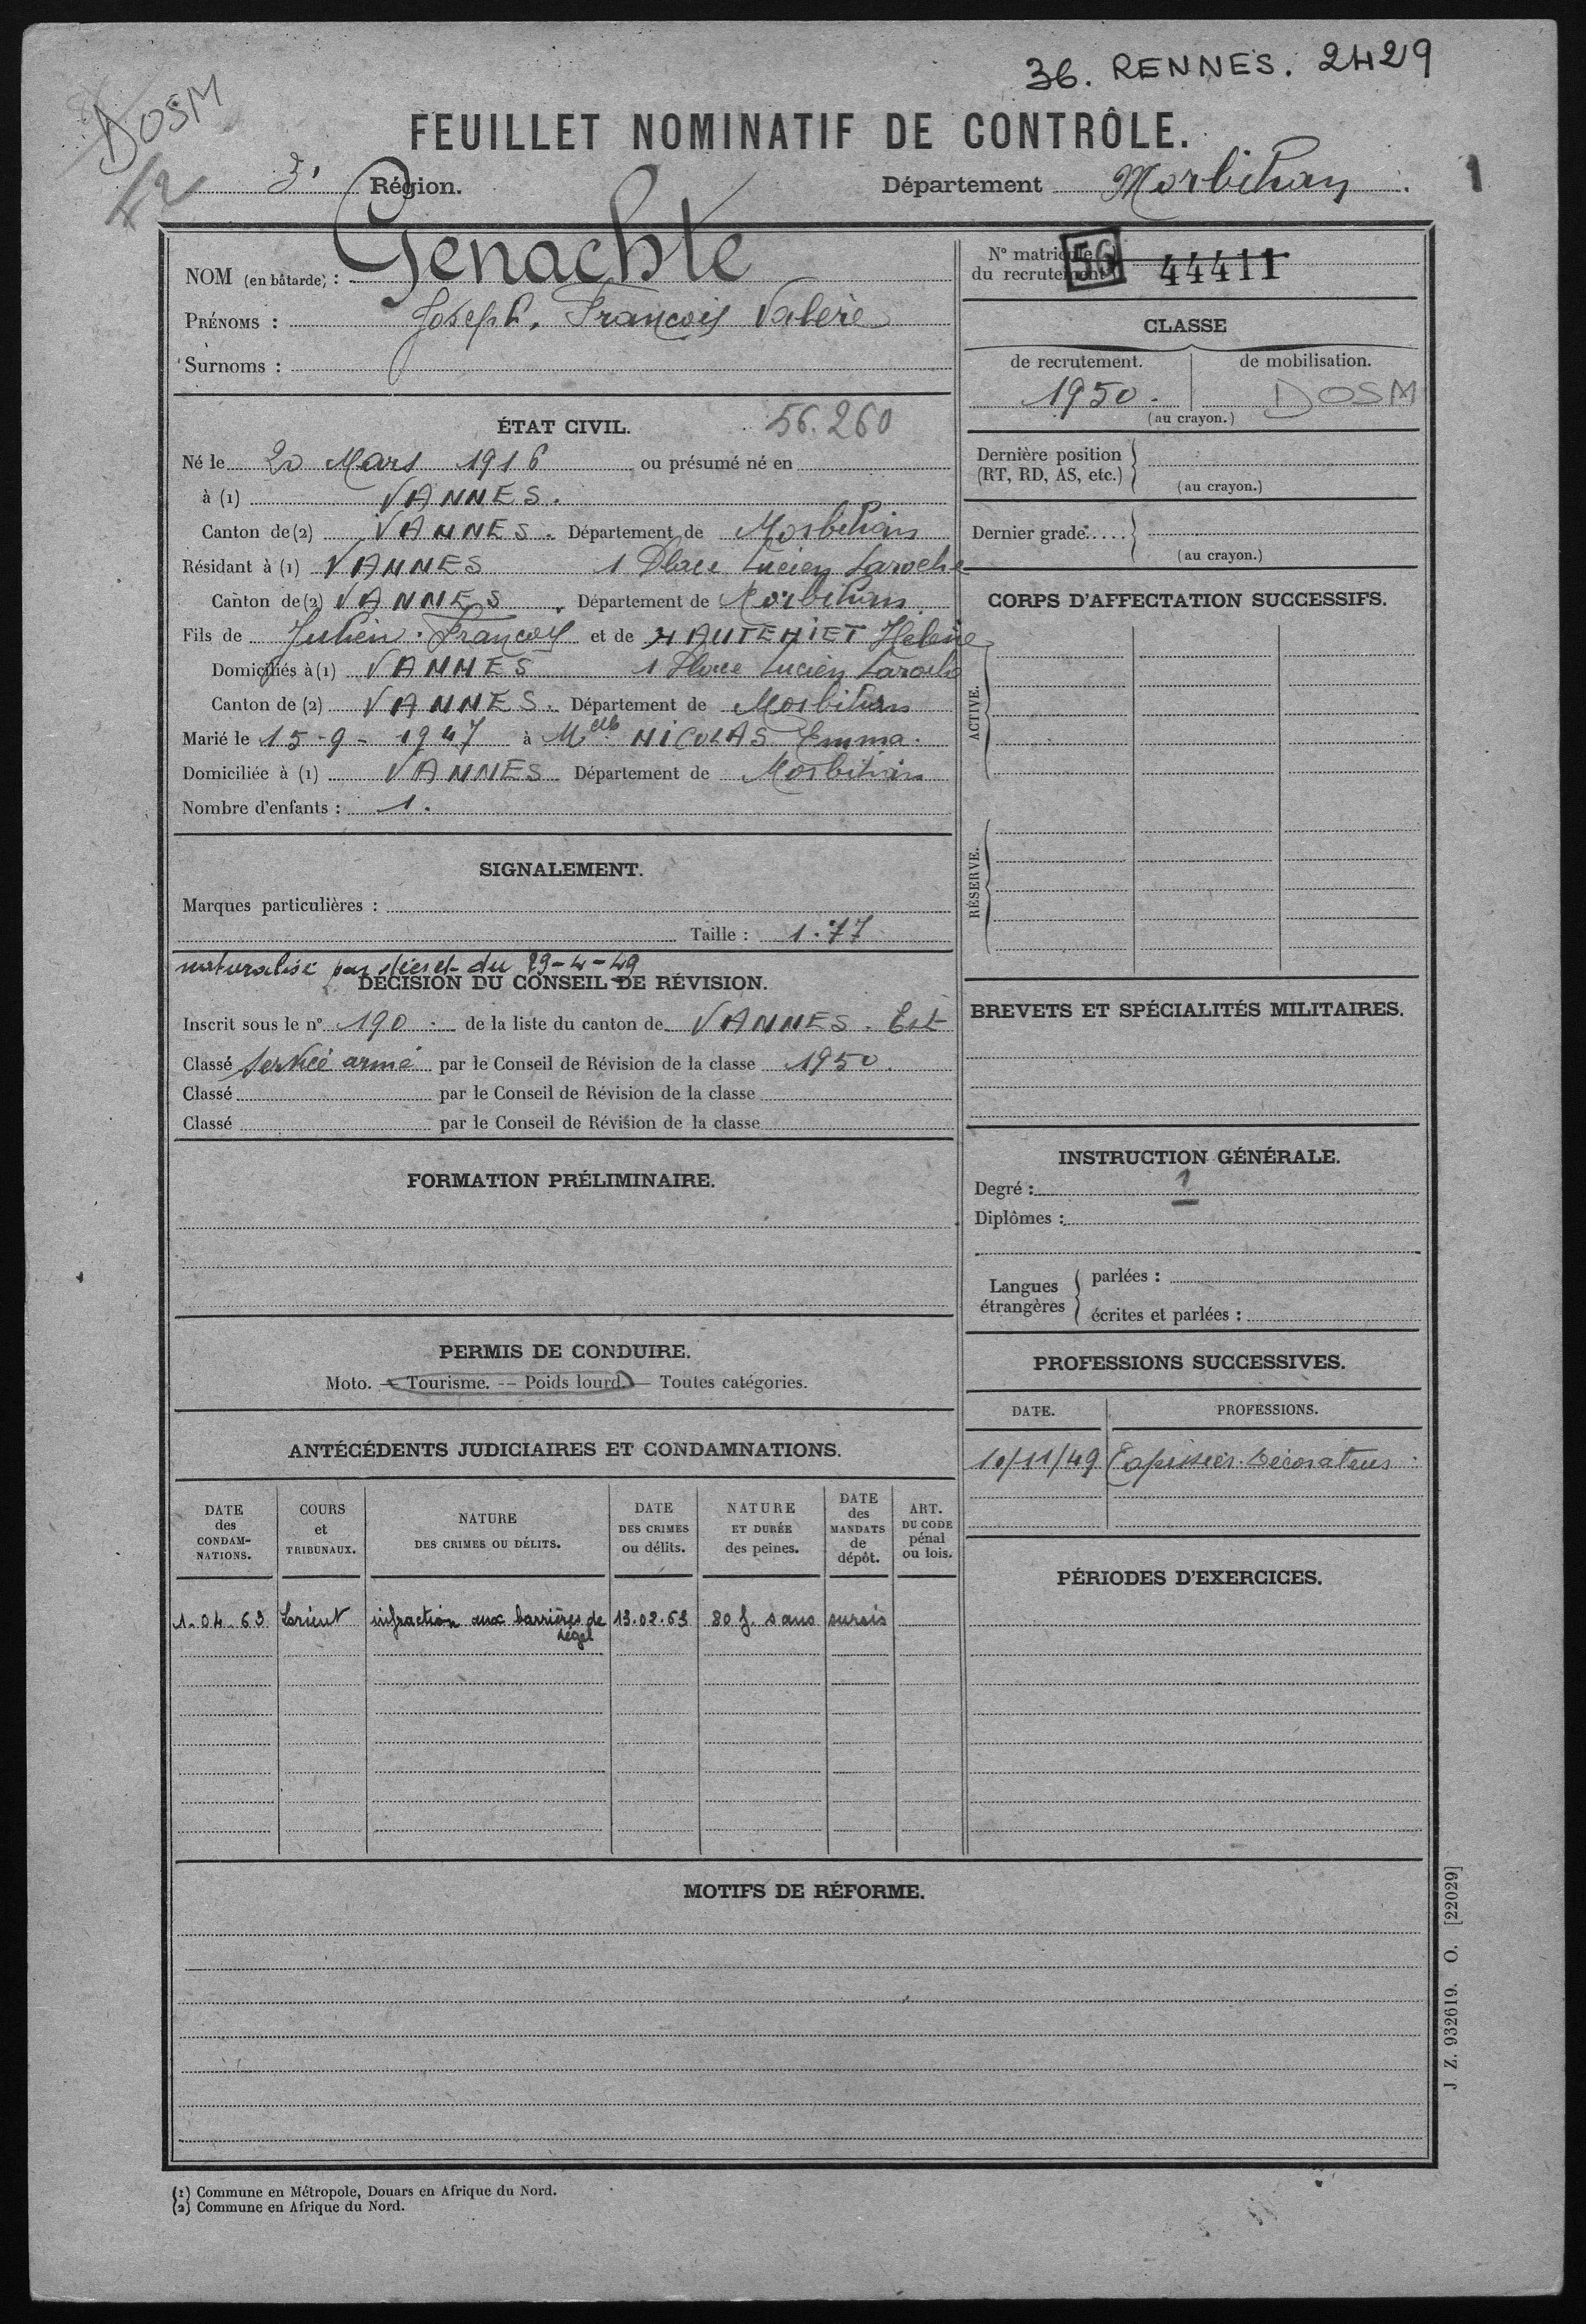 36. RENNES. 2429
DOSM
42
FEUILLET NOMINATIF DE CONTRÔLE.
3' Région.
Département Morbihan.
1
NOM (en bâtarde) : Genachte
PRÉNOMS : Joseph. François Valère
Surnoms :
ÉTAT CIVIL.
56.260
Né le 20 Mars 1916 ou présumé né en
à (1) VANNES.
Canton de (2) VANNES. Département de Morbihan
Résidant à (1) VANNES 1 Place Lucien Laroche
Canton de (2) VANNES. Département de Morbihan.
Fils de Julien. François et de HAUTEKIET Helene
Domiciliés à (1) VANNES 1 Place Lucien Laroche
Canton de (2) VANNES. Département de Morbihan
Marié le 15-9-1947 à Melle NICOLAS Emma.
Domiciliée à (1) VANNES Département de Morbihan
Nombre d'enfants : 1.
SIGNALEMENT.
Marques particulières :
Taille : 1.77
naturalisé par décret du 29-4-49
DÉCISION DU CONSEIL DE RÉVISION.
Inscrit sous le n° 190. de la liste du canton de VANNES. Est
Classé service armé par le Conseil de Révision de la classe 1950.
Classé par le Conseil de Révision de la classe
Classé par le Conseil de Révision de la classe
FORMATION PRÉLIMINAIRE.
PERMIS DE CONDUIRE.
Moto. — Tourisme. — Poids lourd. — Toutes catégories.
ANTÉCÉDENTS JUDICIAIRES ET CONDAMNATIONS.
DATE des CONDAMNATIONS.
COURS et TRIBUNAUX.
NATURE DES CRIMES OU DÉLITS.
DATE DES CRIMES ou délits.
NATURE ET DURÉE des peines.
DATE des MANDATS de dépôt.
ART. DU CODE pénal ou lois.
1.04.63 Lorient infraction aux barrières de dégel 13.02.63 80 f. sans sursis
N° matricule du recrutement 56 44411
CLASSE
de recrutement. de mobilisation.
1950. DOSM
(au crayon.)
Dernière position (RT, RD, AS, etc.)
(au crayon.)
Dernier grade.....
(au crayon.)
CORPS D'AFFECTATION SUCCESSIFS.
ACTIVE.
RÉSERVE.
BREVETS ET SPÉCIALITÉS MILITAIRES.
INSTRUCTION GÉNÉRALE.
Degré : 1
Diplômes :
Langues étrangères
parlées :
écrites et parlées :
PROFESSIONS SUCCESSIVES.
DATE. PROFESSIONS.
10/11/49 Tapissier-Décorateur.
PÉRIODES D'EXERCICES.
MOTIFS DE RÉFORME.
J Z. 932619. O. [22029]
(1) Commune en Métropole, Douars en Afrique du Nord.
(2) Commune en Afrique du Nord.